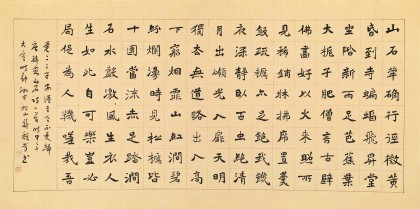 山石犖确行徑微黃
昏到寺蝙蝠飛昇堂
坐階新雨足芭蕉葉
大支子肥僧言古壁
佛畫好以火來照所
見稀鋪牀拂席置羹
飯疏糲亦足飽我飢
夜深靜臥百蟲絕清
月出嶺光入扉天明
獨去無道路出入高
下窮煙霏山紅澗碧
紛爛漫時見松櫪皆
十圍當流赤足蹋澗
石水聲激風生衣人
生如此自可樂豈必
局促為人鞿嗟哉吾
黨二三子安得至老不更歸
唐韓愈山石詩一首時甲子